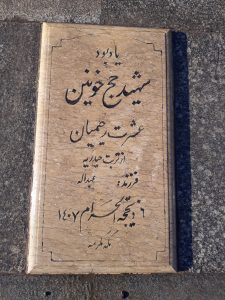 یادبود
شهید حج خونین
عشرت رحیمیان
از تربت حیدریه
فرزند عبداله
۶ ذیحجه الحرام ۱۴۰۷
مکه مکرمه